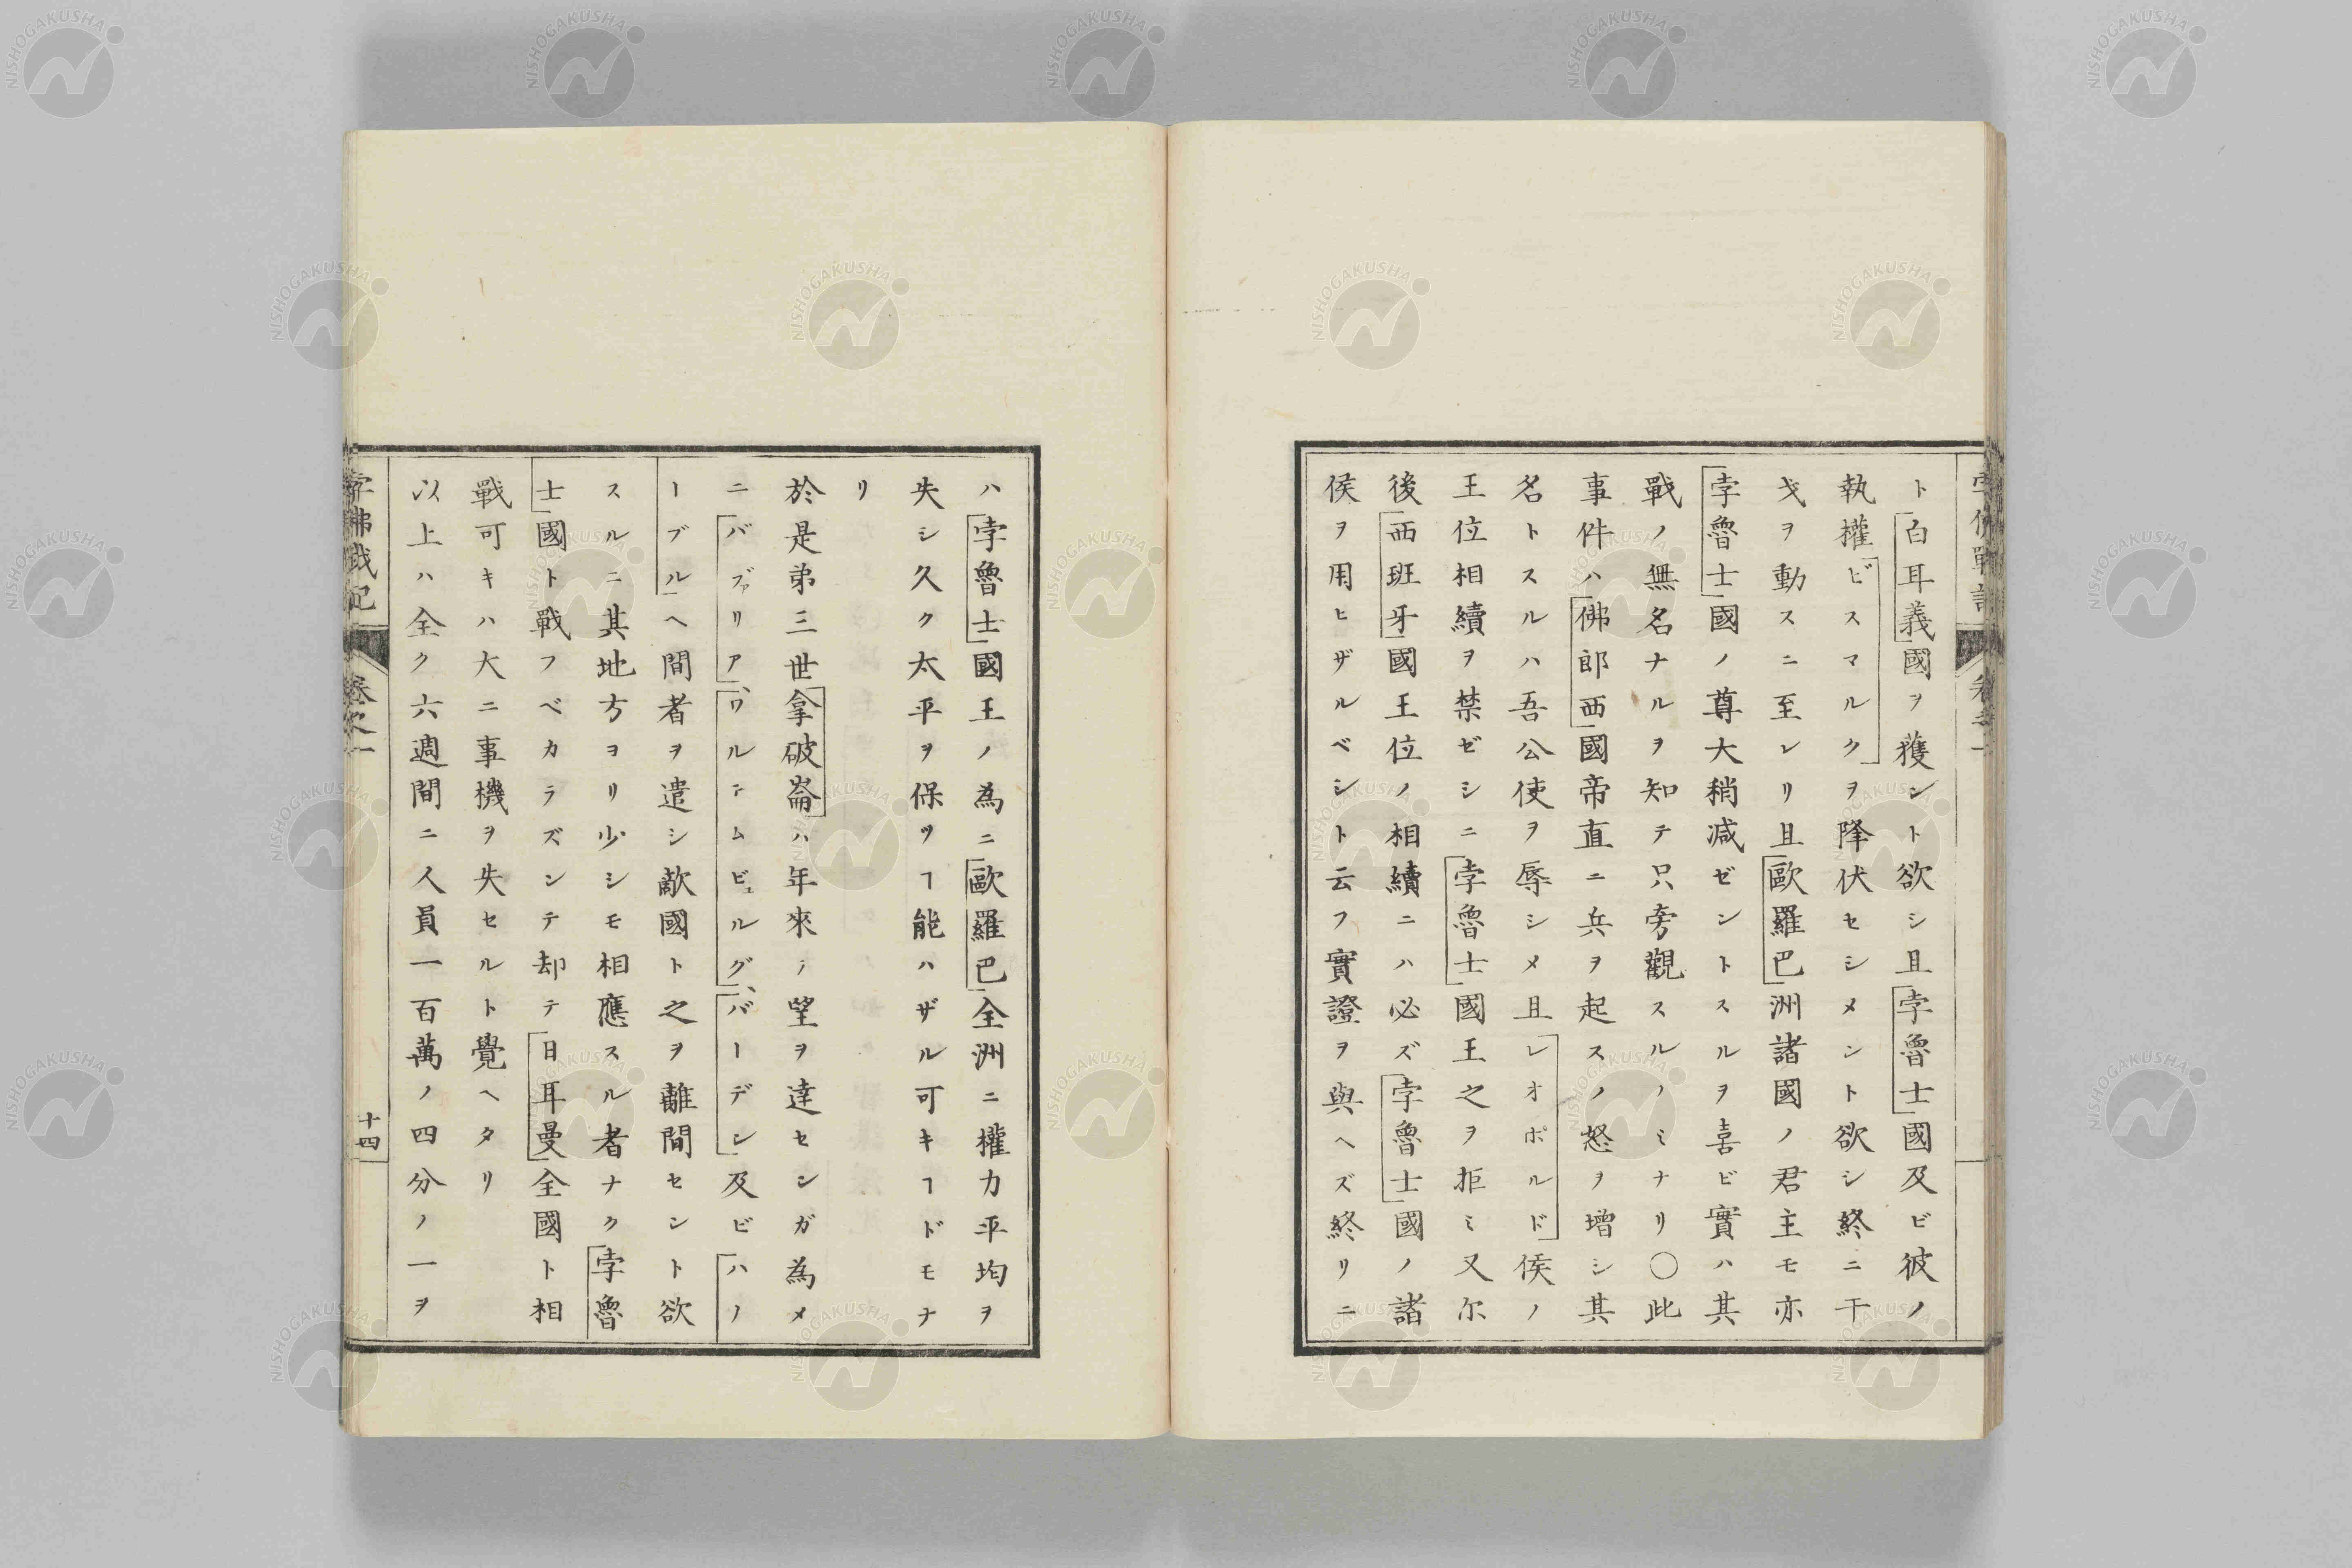 ト白耳義國ヲ獲ント欲シ且孛魯士國及ビ彼ノ
執權ビスマルクヲ降伏セシメント欲シ終ニ干
戈ヲ動スニ至レリ且歐羅巴洲諸國ノ君主モ亦
孛魯士國ノ尊大稍減ゼントスルヲ喜ビ實ハ其
戰ノ無名ナルヲ知テ只旁觀スルノミナリ〇此
事件ハ佛郎西國帝直ニ兵ヲ起スノ怒ヲ增シ其
名トスルハ吾公使ヲ辱シメ且レオポルド侯ノ
王位相續ヲ禁ゼシニ孛魯士國王之ヲ拒ミ又尓
後西班牙國王位ノ相續ニハ必ズ孛魯士國ノ諸
侯ヲ用ヒザルベシト云フ實證ヲ與ヘズ終リニ
ハ孛魯士國王ノ為ニ歐羅巴全洲ニ權力平均ヲ
失シ久ク太平ヲ保ツヿ能ハザル可キヿドモナ
リ
於是第三世拿破崙ハ年來ノ望ヲ達センガ為メ
ニバブァリア、ワルテムビュルグ、バーデン及ビハノ
ーブルヘ間者ヲ遣シ敵國ト之ヲ離間セント欲
スルニ其地方ヨリ少シモ相應スル者ナク孛魯
士國ト戰フベカラズンテ却テ日耳曼全國ト相
戰可キハ大ニ事機ヲ失セルト覺ヘタリ
以上ハ全ク六週間ニ人員一百萬ノ四分ノ一ヲ
孛佛戰記
卷之一
十四
NISHOGAKUSHA